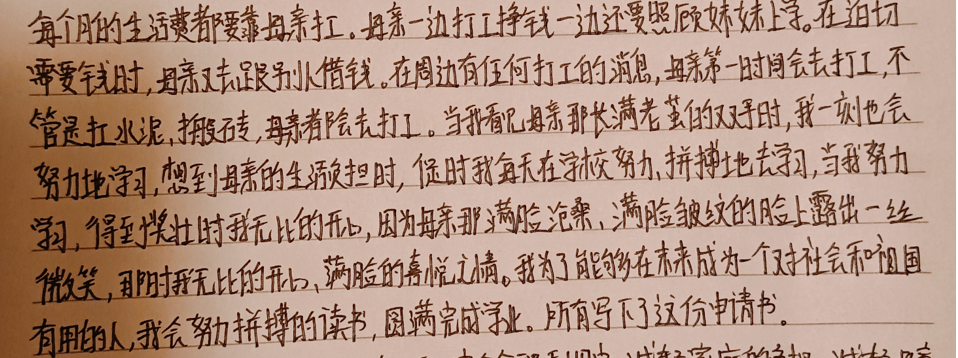 每个月的生活费都要靠母亲打工。母亲一边打工挣钱一边还要照顾妹妹上学。在迫切
需要钱时,母亲又去跟别人借钱。在周边有任何打工的消息,母亲第一时间会去打工,不
管是扛水泥,搬砖,母亲都会去打工。当我看见母亲那长满老茧的双手时,我一刻也会
努力地学习,想到母亲的生活负担时,促时我每天在学校努力、拼搏地去学习,当我努力
学习,得到奖壮时我无比的开心,因为母亲那满脸沧桑、满脸皱纹的脸上露出一丝
微笑,那时我无比的开心、满脸的喜悦之情。我为了能够在未来成为一个对社会和祖国
有用的人,我会努力拼搏的读书,圆满完成学业。所有写下了这份申请书。